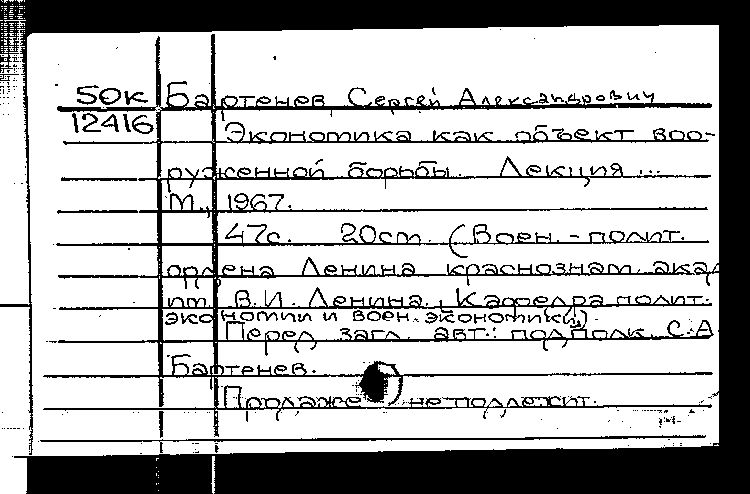 50к Бартенев, Сергей Александрович
12416
Экономика как объект воо-
руженной борьбы. Лекция ...
М., 1967.
47с. 20см. (Воен.-полит.
ордена Ленина краснознам. акад
им. В.И. Ленина. Кафедра полит.
экономии и воен. экономики).
Перед загл. авт.: подполк. С.А.
Бартенев.
Продаже не подлежит.